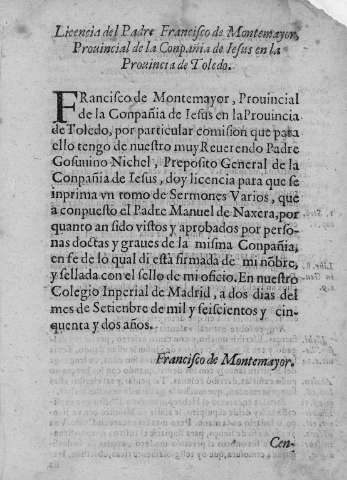 Licencia del Padre Francisco de Montemayor,
Prouincial de la Conpañia de Iesus en la
Prouincia de Toledo.
FRancisco de Montemayor, Prouincial
de la Conpañia de Iesus en la Prouincia
de Toledo, por particular comision que para
ello tengo de nuestro muy Reuerendo Padre
Gosuuino Nichel, Preposito General de la
Conpañia de Iesus, doy licencia para que se
inprima vn tomo de Sermones Varios, que
a conpuesto el Padre Manuel de Naxera, por
quanto an sido vistos y aprobados por perso-
nas doctas y graues de la misma Conpañia,
en fe de lo qual di esta firmada de mi nõbre,
y sellada con el sello de mi oficio. En nuestro
Colegio Inperial de Madrid, a dos dias del
mes de Setienbre de mil y seiscientos y cin-
quenta y dos años.
Francisco de Montemayor.
Cen-